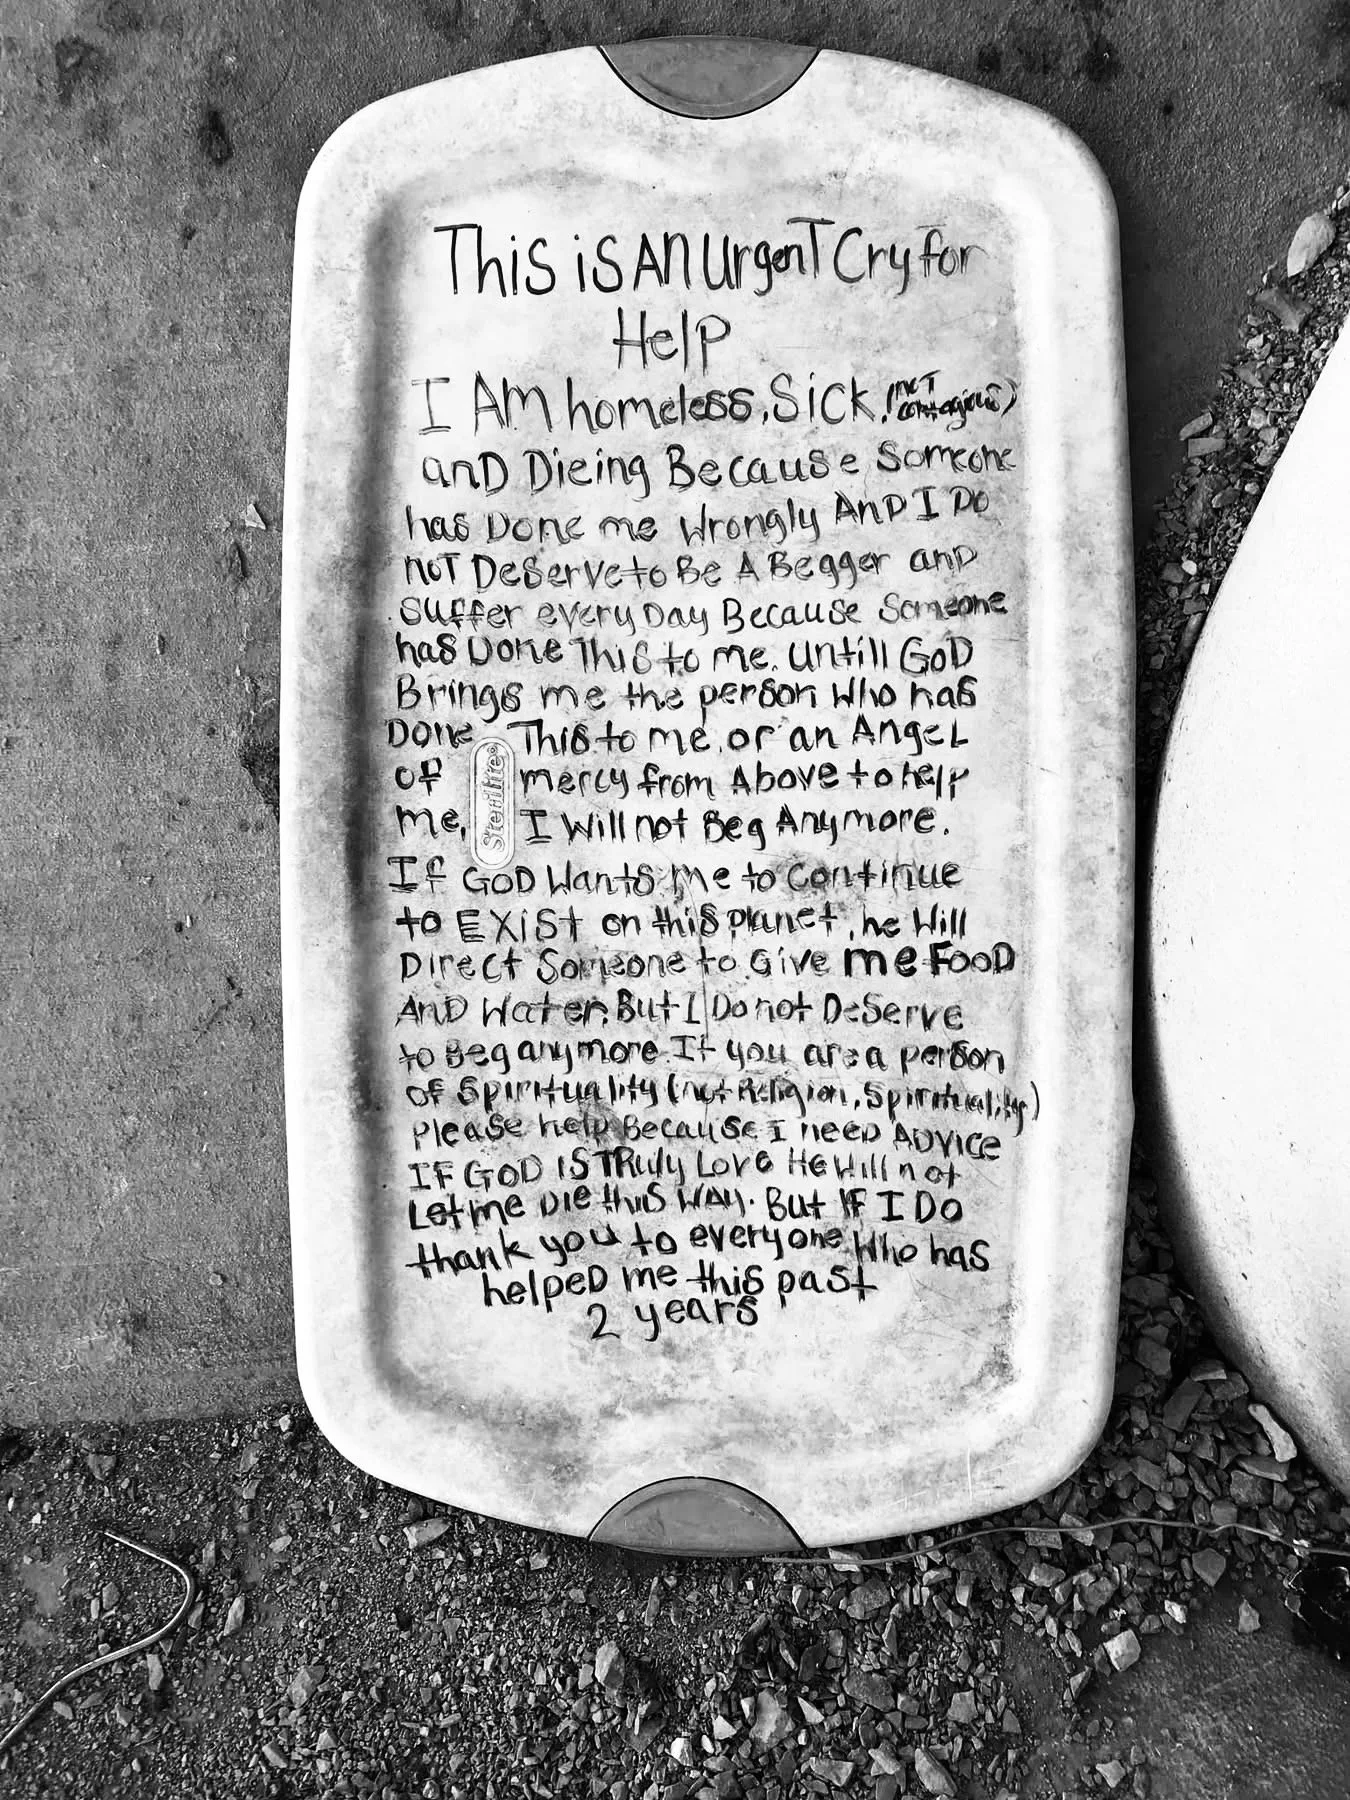 This is An Urgent Cry for
Help
I AM homeless, Sick, (not contagious)
and Dieing Because Someone
has Done me Wrongly And I Do
not Deserve to Be A Begger and
Suffer every Day Because Someone
has Done This to me. Untill GoD
Brings me the person Who has
Done This to me, or an Angel
of mercy from Above to help
me, I Will not Beg Anymore.
Sterilite
If GoD Wants me to Continue
to EXiSt on this planet, he Will
Direct Someone to Give me FooD
AnD Water. But I Do not DeServe
to Beg anymore. If you are a person
of Spirituality (not Religion, Spirituality)
please help Because I need ADVice
IF GoD IS TRuly Love He Will not
Let me Die this WAy. But IF I Do
thank you to everyone Who has
helpeD me this past
2 years